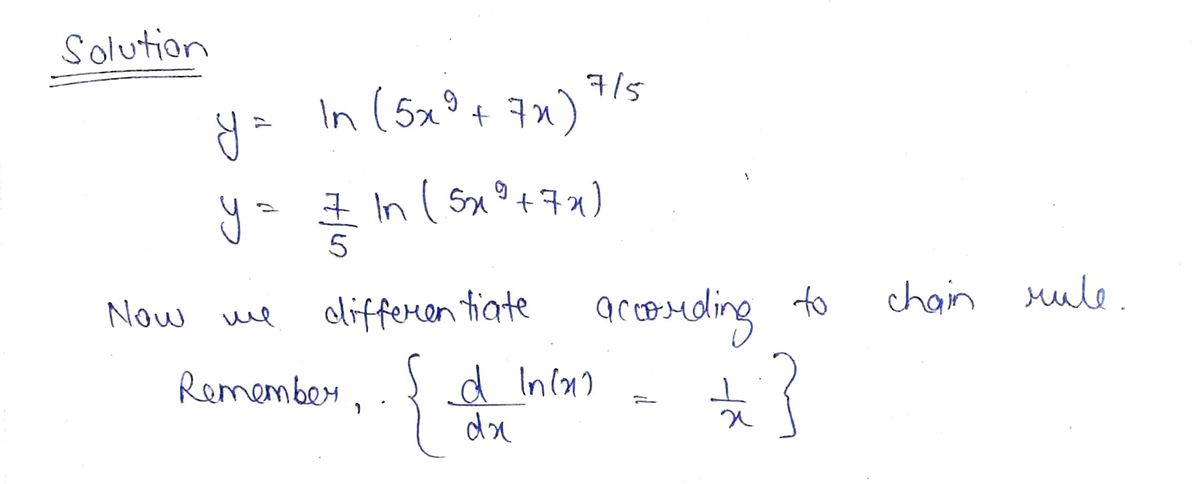 Solution
y = ln (5x⁹ + 7x)^7/5
y = 7/5 ln (5x⁹ + 7x)
Now we differentiate according to chain rule.
Remember, . { d/dx ln(x) = 1/x }